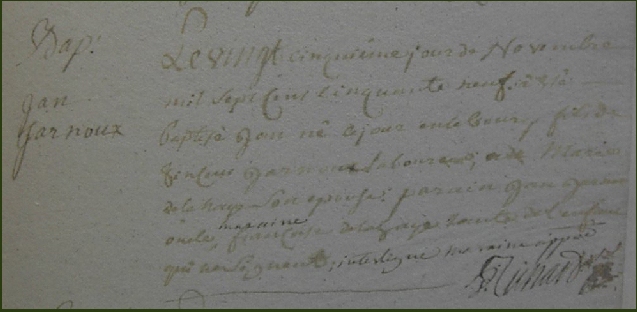 Bap.t
Jan
Garnoux
Le vingt cinquième jour de Novembre
mil Sept Cens Cinquante neuf a été
baptisé Jan né ce jour en le bourg fils de
Garnoux Laboureur, et de Marie
de la haye Son epouse; parein Jan Garnoux
oncle, maraine françoise de la haye tante de l'enfant
qui ne Signent, interligne maraine approuvé
Richard